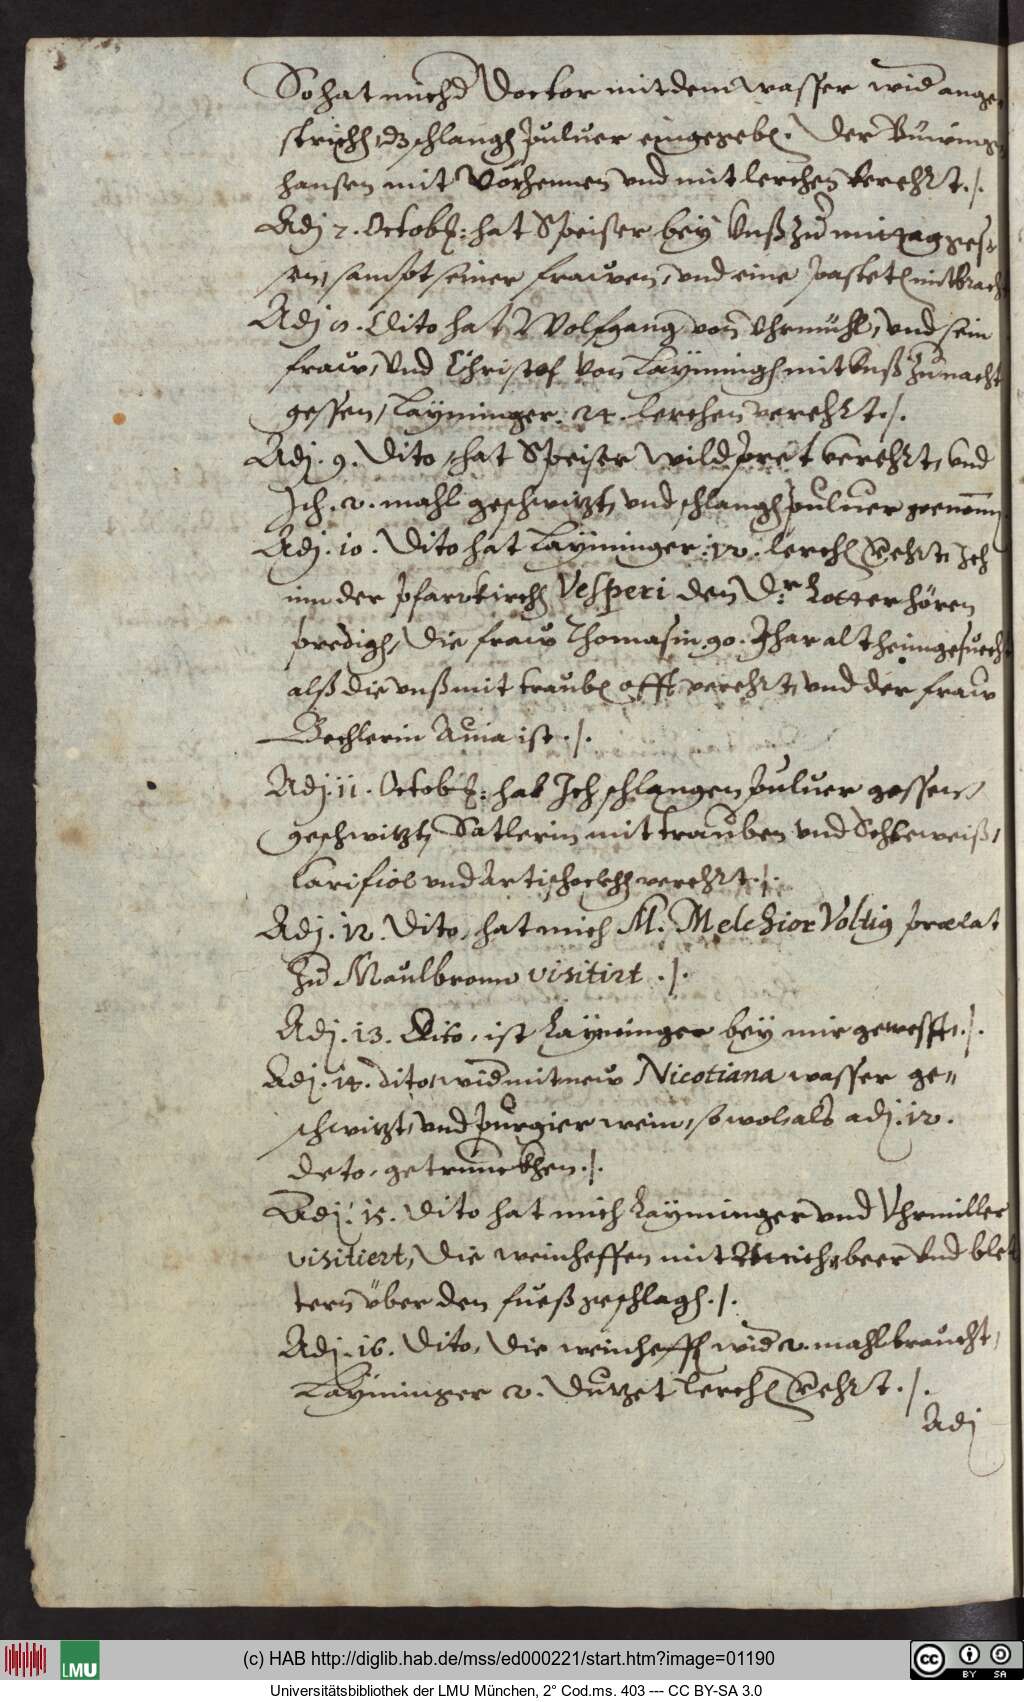 So hat mich d Doctor mit dem wasser wid ange-
strichen, dz schlangen Puluer eingegeben. Der Buwing-
hausen mit Vörhennen und mit lerchen verehrt ./.
Adj 7. Octobr: hat Speiser bey Unß zu mittag gess-
en, sampt seiner frawen, und eine pasteten mitbracht
Adj 8. Dito hat Wolfgang von Uhrmühl, und sein
fraw, und Christof von Layming mit Unß Zu nacht
gessen, Layminger 24. lerchen verehrt ./.
Adj. 9. Dito, hat Speiser wildpret verehrt, und
Ich. 2. mahl geschwizt, und schlangen puluer genomen
Adj. 10. Dito hat Layminger. 12. lerchen verehrt, Ich
inn der Pfarrkirchen Vesperi den Dr. hören
predigen, Die fraw Thomasin 90. Jhar alt heimgesuecht
alß die unß mit trauben offt verehrt, und der fraw
Bechlerin Ania ist ./.
Adj. 11. Octobr: hab Ich schlangen puluer gessen
geschwizt, Satlerin mit trauben und
Carifiol und Artischockhen verehrt ./.
Adj. 12. Dito, hat mich M. Melchior Voltig prælat
Zu Maulbronn visitirt ./.
Adj. 13. Dito, ist Layminger bey mir gewesst ./.
Adj. 14. dito, wid mit new Nicotiana wasser ge-
schwizt, und purgier wein, so wol als adj. 12.
deto, getrunckhen ./.
Adj. 15. Dito hat mich Layminger und Uhrmiller
visitiert, Die weinheffen mit beer und blet
tern über den fueß geschlagen ./.
Adj. 16. Dito, Die weinheffen wid 2. mahl braucht,
Layminger 2. Dutzet lerchen verehrt ./.
Adj
(c) HAB http://diglib.hab.de/mss/ed000221/start.htm?image=01190
LMU
BY SA
Universitätsbibliothek der LMU München, 2° Cod.ms. 403 --- CC BY-SA 3.0